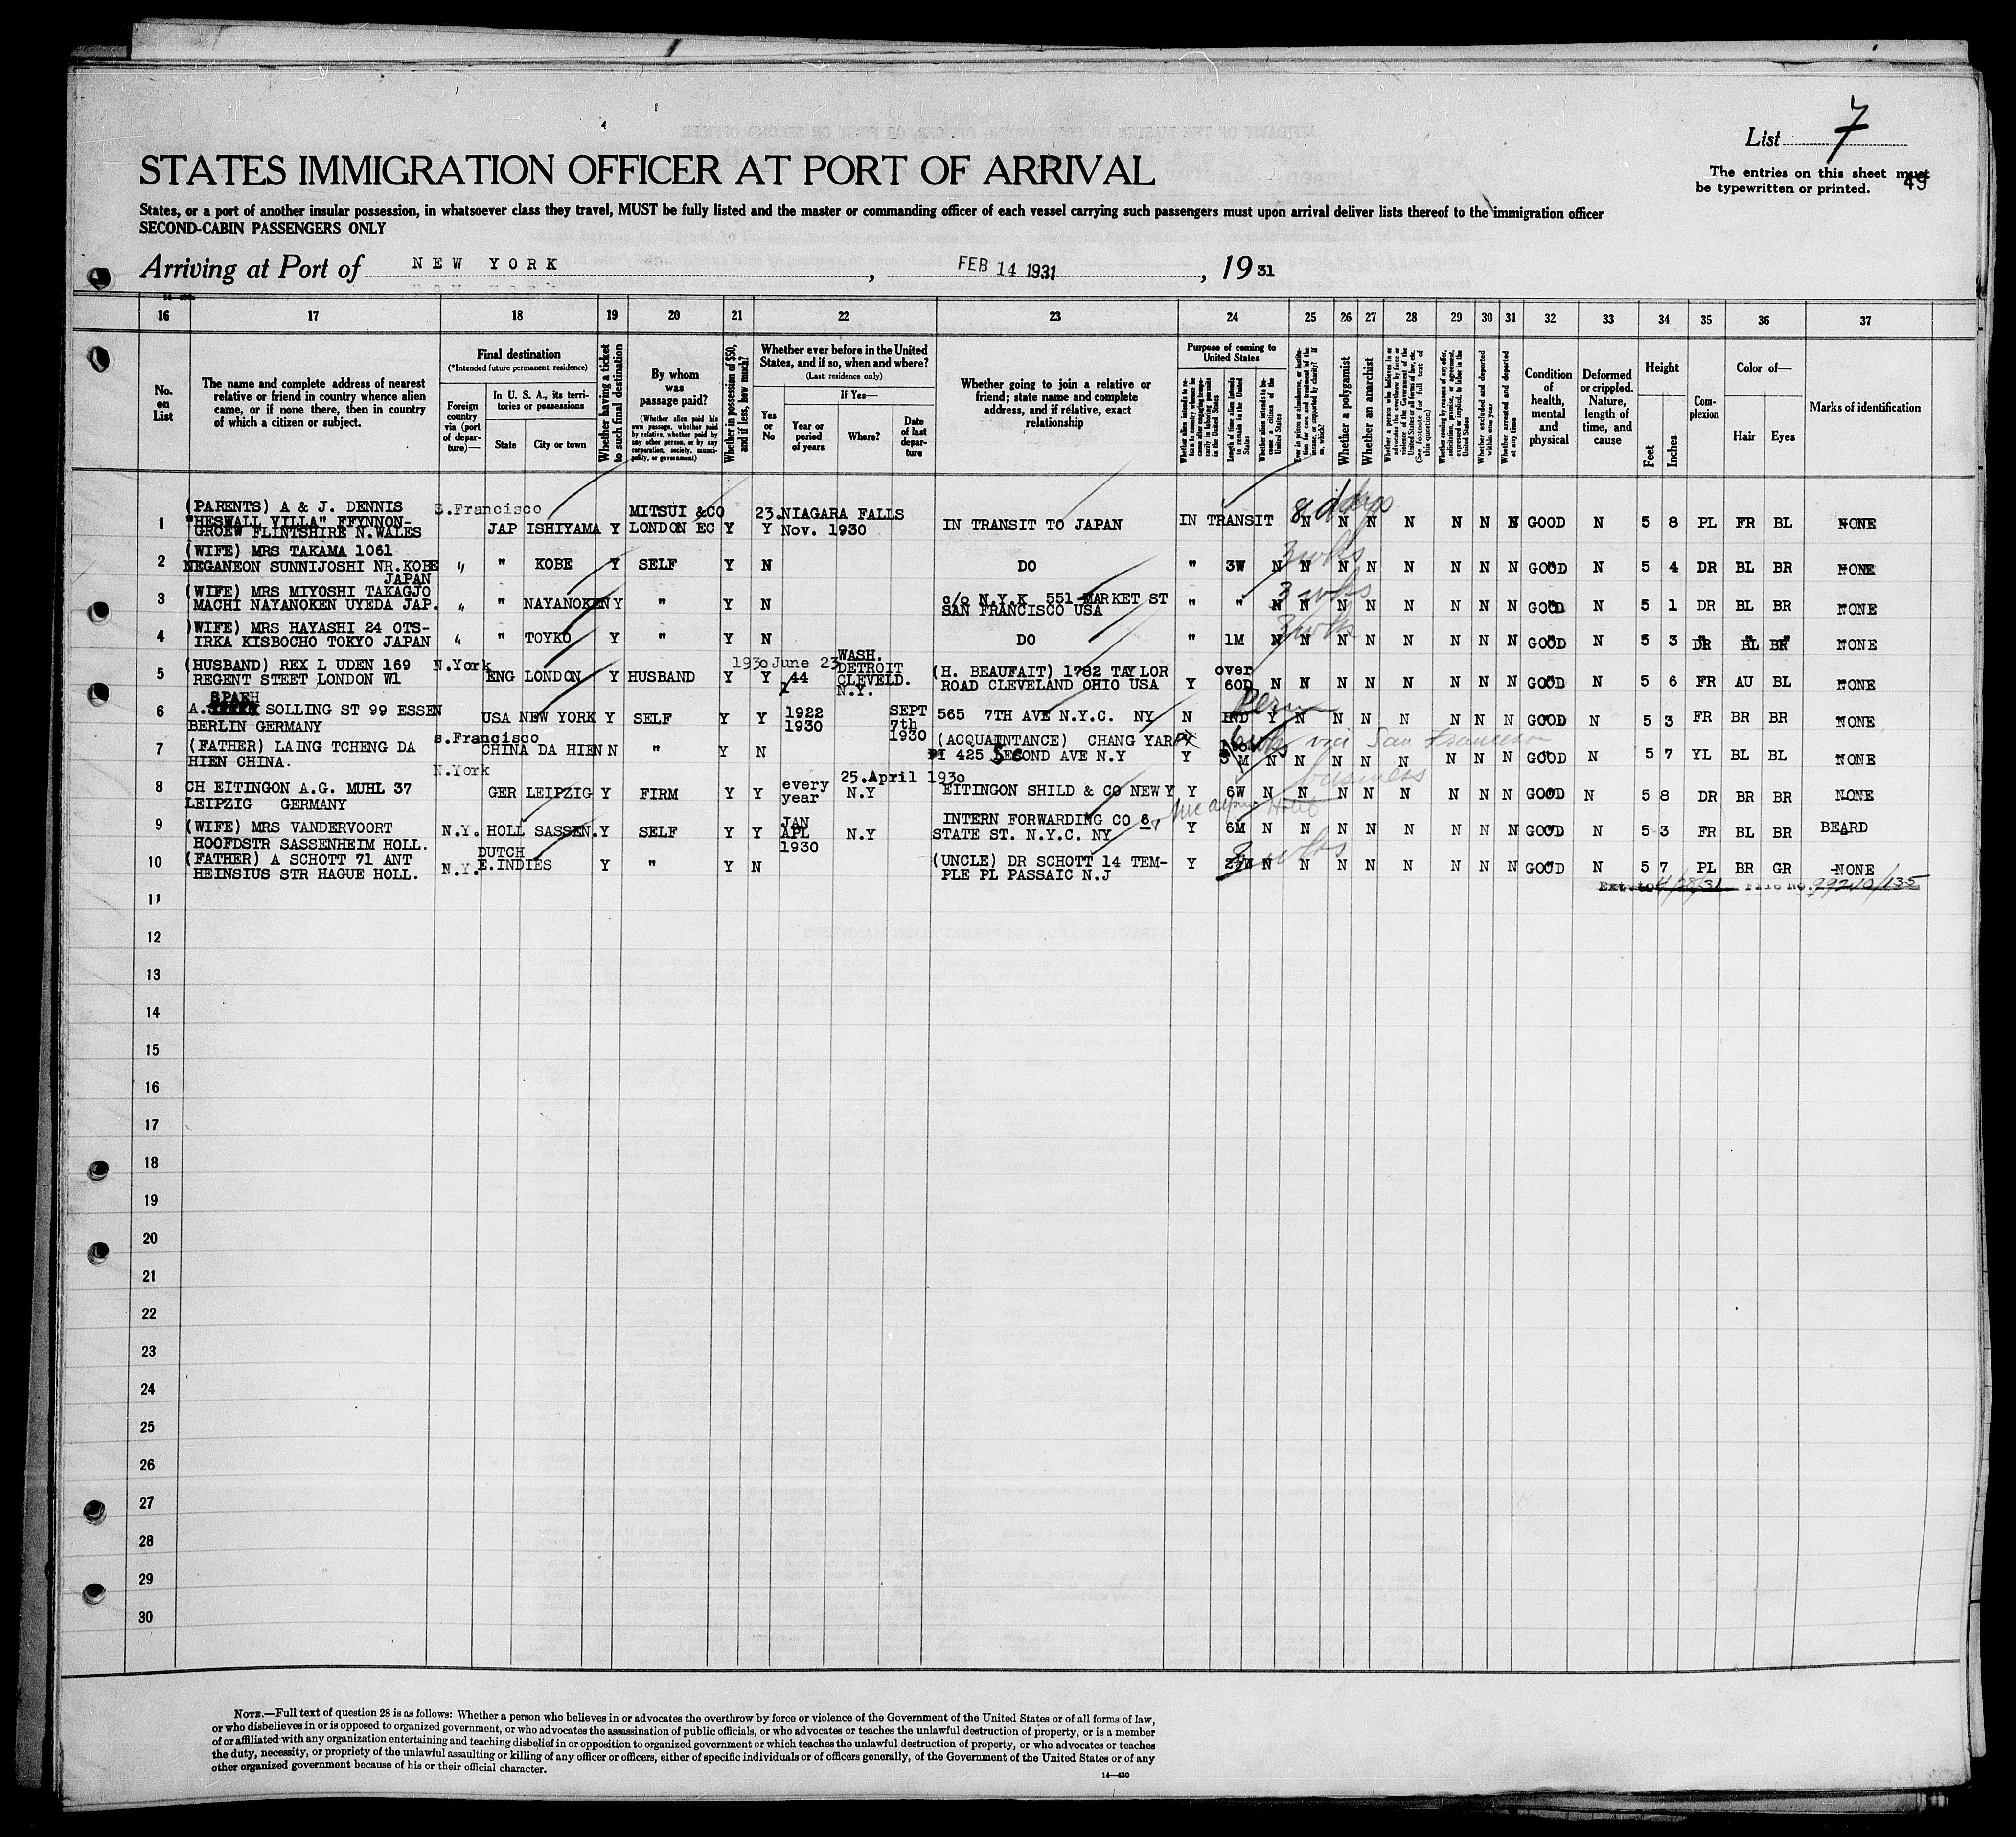 List 7
STATES IMMIGRATION OFFICER AT PORT OF ARRIVAL
The entries on this sheet must
be typewritten or printed.
49
States, or a port of another insular possession, in whatsoever class they travel, MUST be fully listed and the master or commanding officer of each vessel carrying such passengers must upon arrival deliver lists thereof to the immigration officer
SECOND-CABIN PASSENGERS ONLY
Arriving at Port of NEW YORK, FEB 14 1931, 1931
16 17 18 19 20 21 22 23 24 25 26 27 28 29 30 31 32 33 34 35 36 37
No. on List
The name and complete address of nearest
relative or friend in country whence alien
came, or if none there, then in country
of which a citizen or subject.
Final destination
(*Intended future permanent residence)
Foreign country via (port of departure)—
In U. S. A., its territories or possessions
State
City or town
Whether having a ticket to such final destination
By whom was passage paid?
(Whether alien paid his own passage, whether paid by relative, whether paid by any other person, or by any corporation, society, municipality, or government)
Whether in possession of $50, and if less, how much?
Whether ever before in the United States, and if so, when and where?
(Last residence only)
Yes or No
If Yes—
Year or period of years
Where?
Date of last departure
Whether going to join a relative or
friend; state name and complete
address, and if relative, exact
relationship
Purpose of coming to United States
Whether alien intends to return to country whence he came after engaging temporarily in laboring pursuits in the United States
Length of time alien intends to remain in the United States
Whether alien intends to become a citizen of the United States
Ever in prison or almshouse, or institution for care and treatment of the insane, or supported by charity? If so, which?
Whether a polygamist
Whether an anarchist
Whether a person who believes in or advocates the overthrow by force or violence of the Government of the United States or of all forms of law, etc. (See footnote for full text of this question)
Whether coming by reason of any offer, solicitation, promise, or agreement, expressed or implied, to labor in the United States
Whether excluded and deported within one year
Whether arrested and deported at any time
Condition of health, mental and physical
Deformed or crippled. Nature, length of time, and cause
Height
Feet
Inches
Complexion
Color of—
Hair
Eyes
Marks of identification
(PARENTS) A & J. DENNIS S.Francisco MITSUI &CO 23.NIAGARA FALLS 8 days
1 "HESWALL VILLA" FFYNNON- JAP ISHIYAMA Y LONDON EC Y Y Nov. 1930 IN TRANSIT TO JAPAN IN TRANSIT N N N N N N N GOOD N 5 8 PL FR BL NONE
GROEW FLINTSHIRE N.WALES
(WIFE) MRS TAKAMA 1061 3 wks
2 NEGANEON SUNNIJOSHI NR.KOBE " " KOBE Y SELF Y N DO " 3W N N N N N N N N GOOD N 5 4 DR BL BR NONE
JAPAN
(WIFE) MRS MIYOSHI TAKAGJO c/o N.Y.K 551 MARKET ST 3 wks
3 MACHI NAYANOKEN UYEDA JAP. " " NAYANOKEN Y " Y N SAN FRANCISCO USA " " N N N N N N N N GOOD N 5 1 DR BL BR NONE
(WIFE) MRS HAYASHI 24 OTS- 3 wks
4 IRKA KISBOCHO TOKYO JAPAN " " TOYKO Y " Y N DO " 1M N N N N N N N N GOOD N 5 3 DR BL BR NONE
(HUSBAND) REX L UDEN 169 N.York 1930 June 23 WASH. DETROIT (H. BEAUFAIT) 1782 TAYLOR over
5 REGENT STEET LONDON W1 ENG LONDON Y HUSBAND Y Y 44 CLEVELD. N.Y. ROAD CLEVELAND OHIO USA Y 60D N N N N N N N N GOOD N 5 6 FR AU BL NONE
SPAEH
6 A. SOLLING ST 99 ESSEN USA NEW YORK Y SELF Y Y 1922 1930 SEPT 7th 1930 565 7TH AVE N.Y.C. NY N IND Y N N N N N N N GOOD N 5 3 FR BR BR NONE
BERLIN GERMANY Perm
7 (FATHER) LAING TCHENG DA s.Francisco CHINA DA HIEN N " Y N (ACQUAINTANCE) CHANG YAR via San Francisco
HIEN CHINA. 425 SECOND AVE N.Y Y M N N N N N N N N GOOD N 5 7 YL BL BL NONE
N.York 25.April 1930 business
8 CH EITINGON A.G. MUHL 37 GER LEIPZIG Y FIRM Y Y every year N.Y EITINGON SHILD & CO NEW Y Y 6W N N N N N N N N GOOD N 5 8 DR BR BR NONE
LEIPZIG GERMANY McAlpin Hotel
9 (WIFE) MRS VANDERVOORT N.Y. HOLL SASSEN. Y SELF Y Y JAN APL 1930 N.Y INTERN FORWARDING CO 6 Y 6M N N N N N N N N GOOD N 5 3 FR BL BR BEARD
HOOFDSTR SASSENHEIM HOLL. STATE ST. N.Y.C. NY
10 (FATHER) A SCHOTT 71 ANT N.Y. DUTCH E.INDIES Y " Y N (UNCLE) DR SCHOTT 14 TEM- Y N N N N N N N N GOOD N 5 7 PL BR GR NONE
HEINSIUS STR HAGUE HOLL. PLE PL PASSAIC N.J
Ext. to 4/28/31 File No. 99210/135
11
12
13
14
15
16
17
18
19
20
21
22
23
24
25
26
27
28
29
30
NOTE.—Full text of question 28 is as follows: Whether a person who believes in or advocates the overthrow by force or violence of the Government of the United States or of all forms of law,
or who disbelieves in or is opposed to organized government, or who advocates the assassination of public officials, or who advocates or teaches the unlawful destruction of property, or is a member
of or affiliated with any organization entertaining and teaching disbelief in or opposition to organized government or which teaches the unlawful destruction of property, or who advocates or teaches
the duty, necessity, or propriety of the unlawful assaulting or killing of any officer or officers, either of specific individuals or of officers generally, of the Government of the United States or of any
other organized government because of his or their official character.
14—430